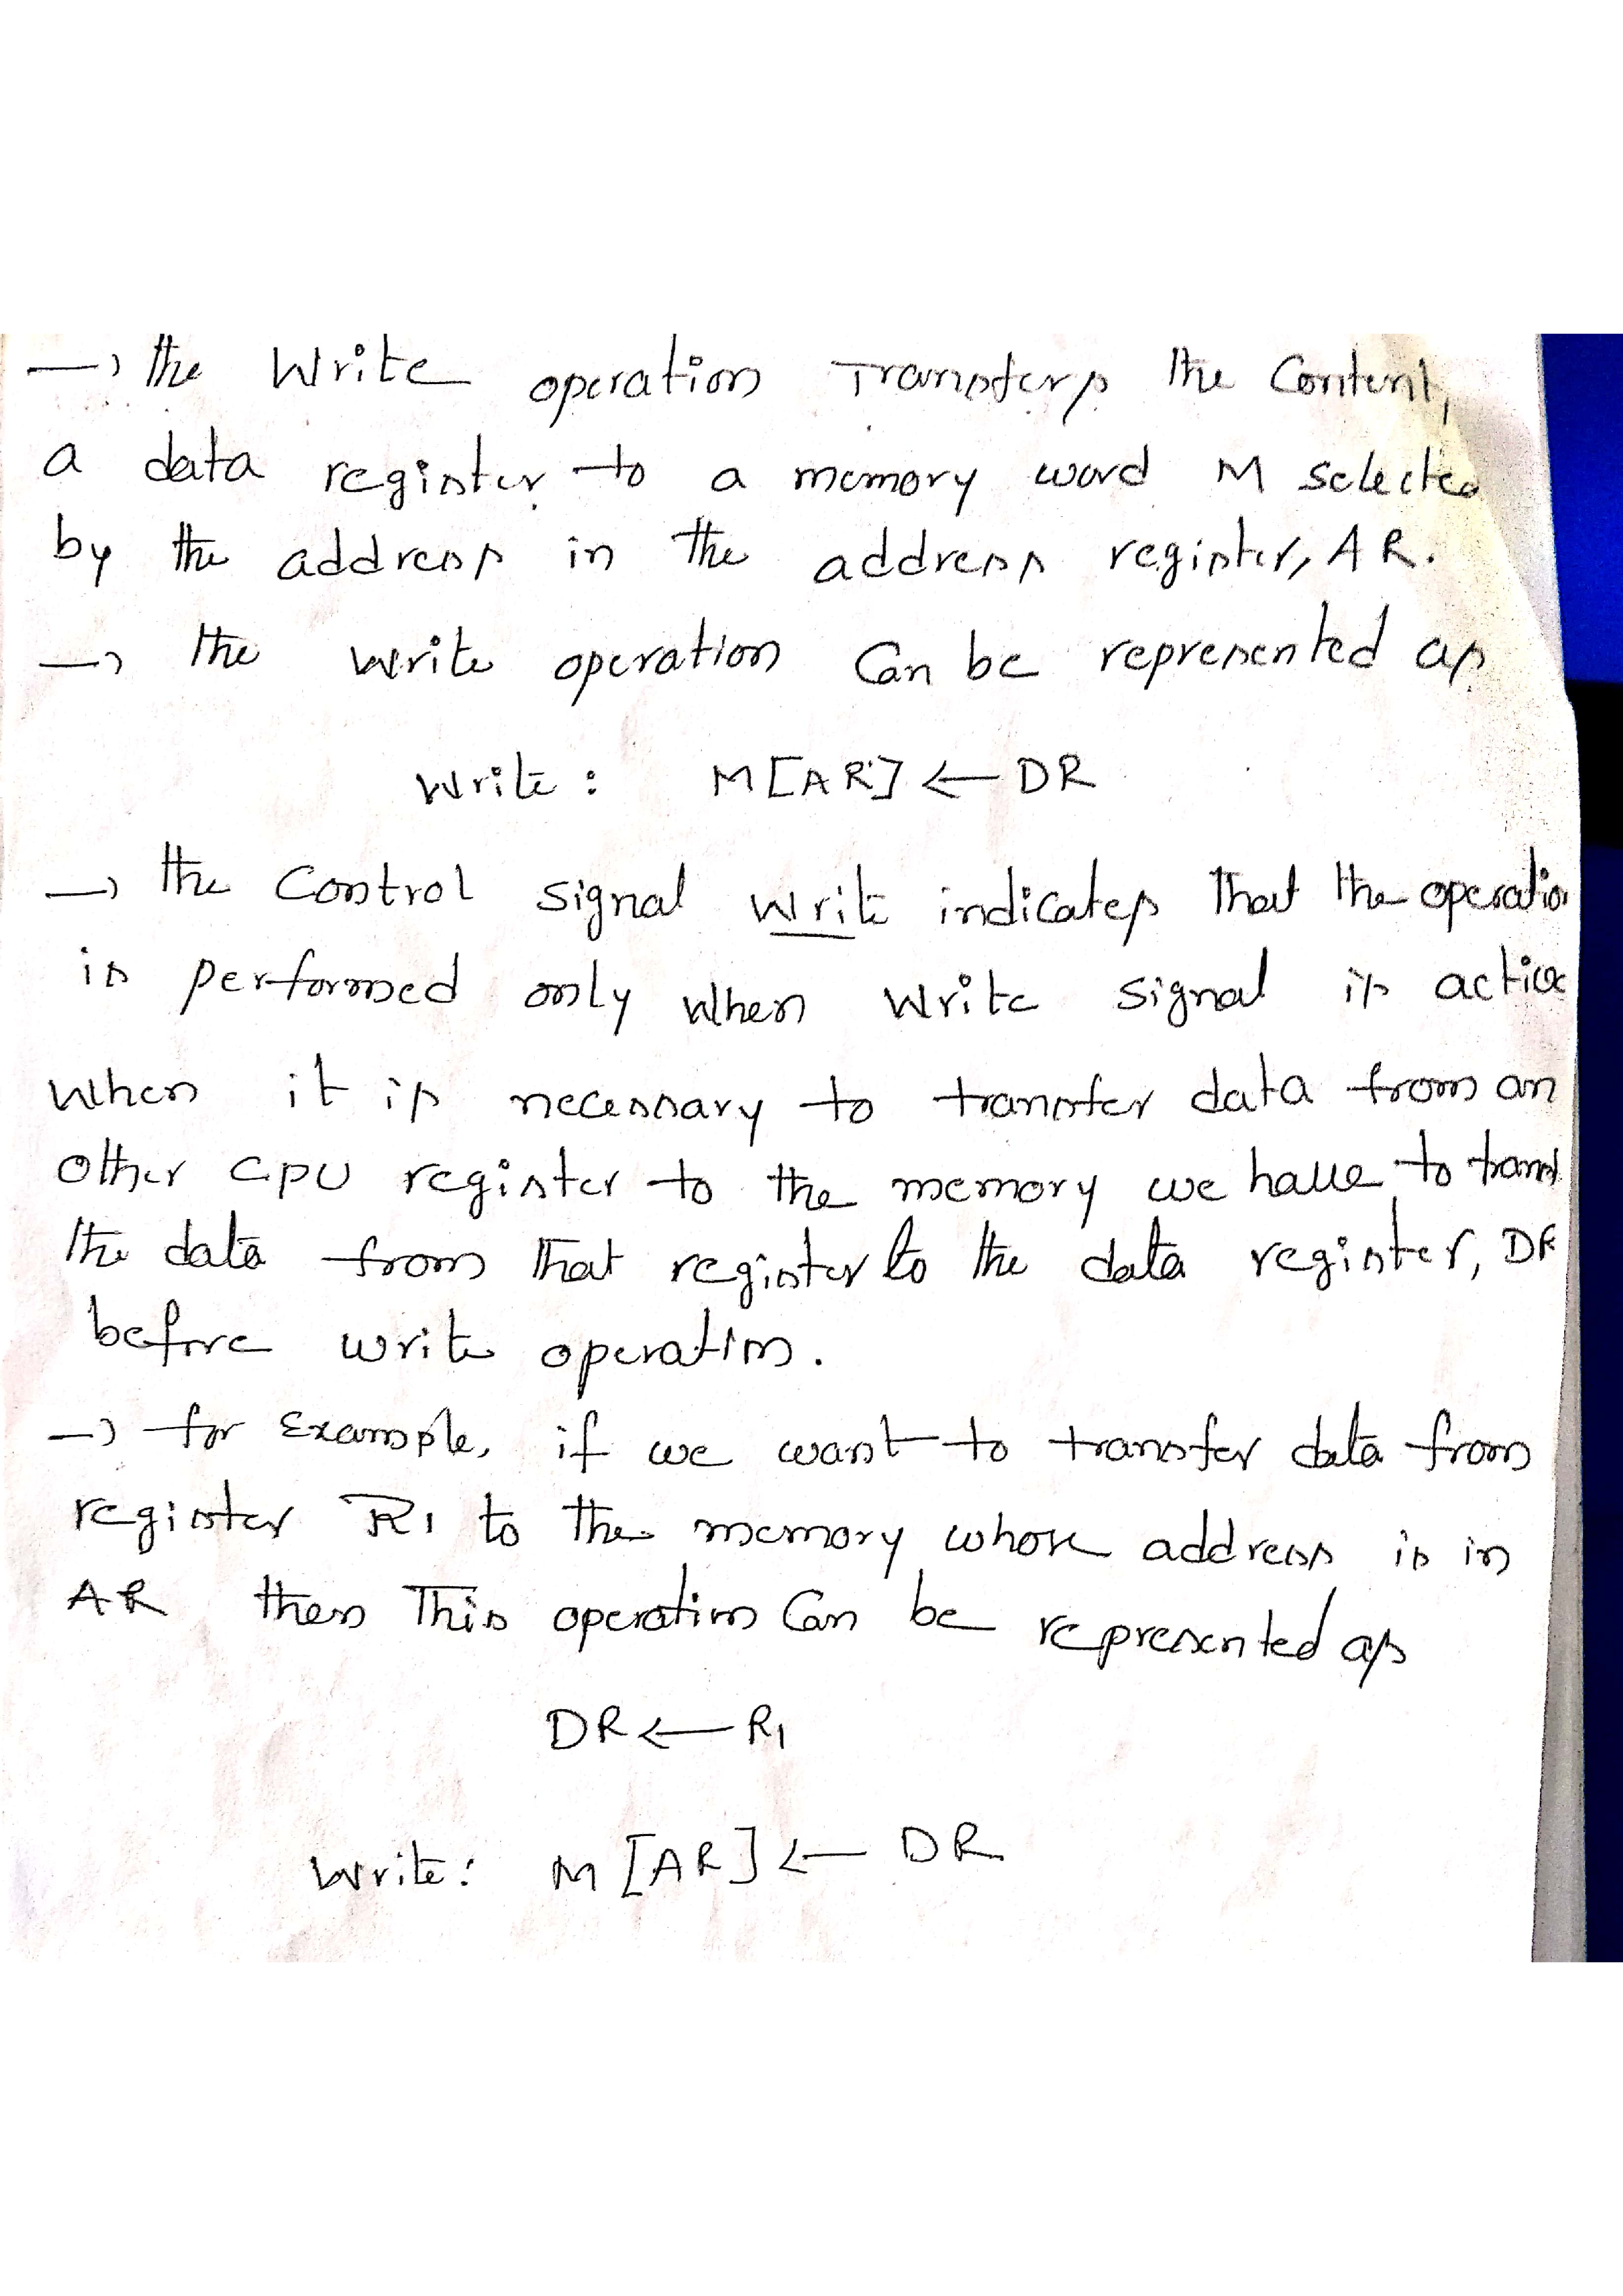 → the Write operation Transfers the Content,
a data register to a memory word M selected
by the address in the address register, AR.
→ the write operation Can be represented as
Write : M[AR] ← DR
→ the Control signal write indicates that the operation
is performed only when write signal is active
when it is necessary to transfer data from an
other CPU register to the memory we have to
the data from that register to the data register, DR
before write operation.
→ for Example, if we want to transfer data from
register R1 to the memory whose address is in
AR then This operation Can be represented as
DR ← R1
Write : M [AR] ← DR